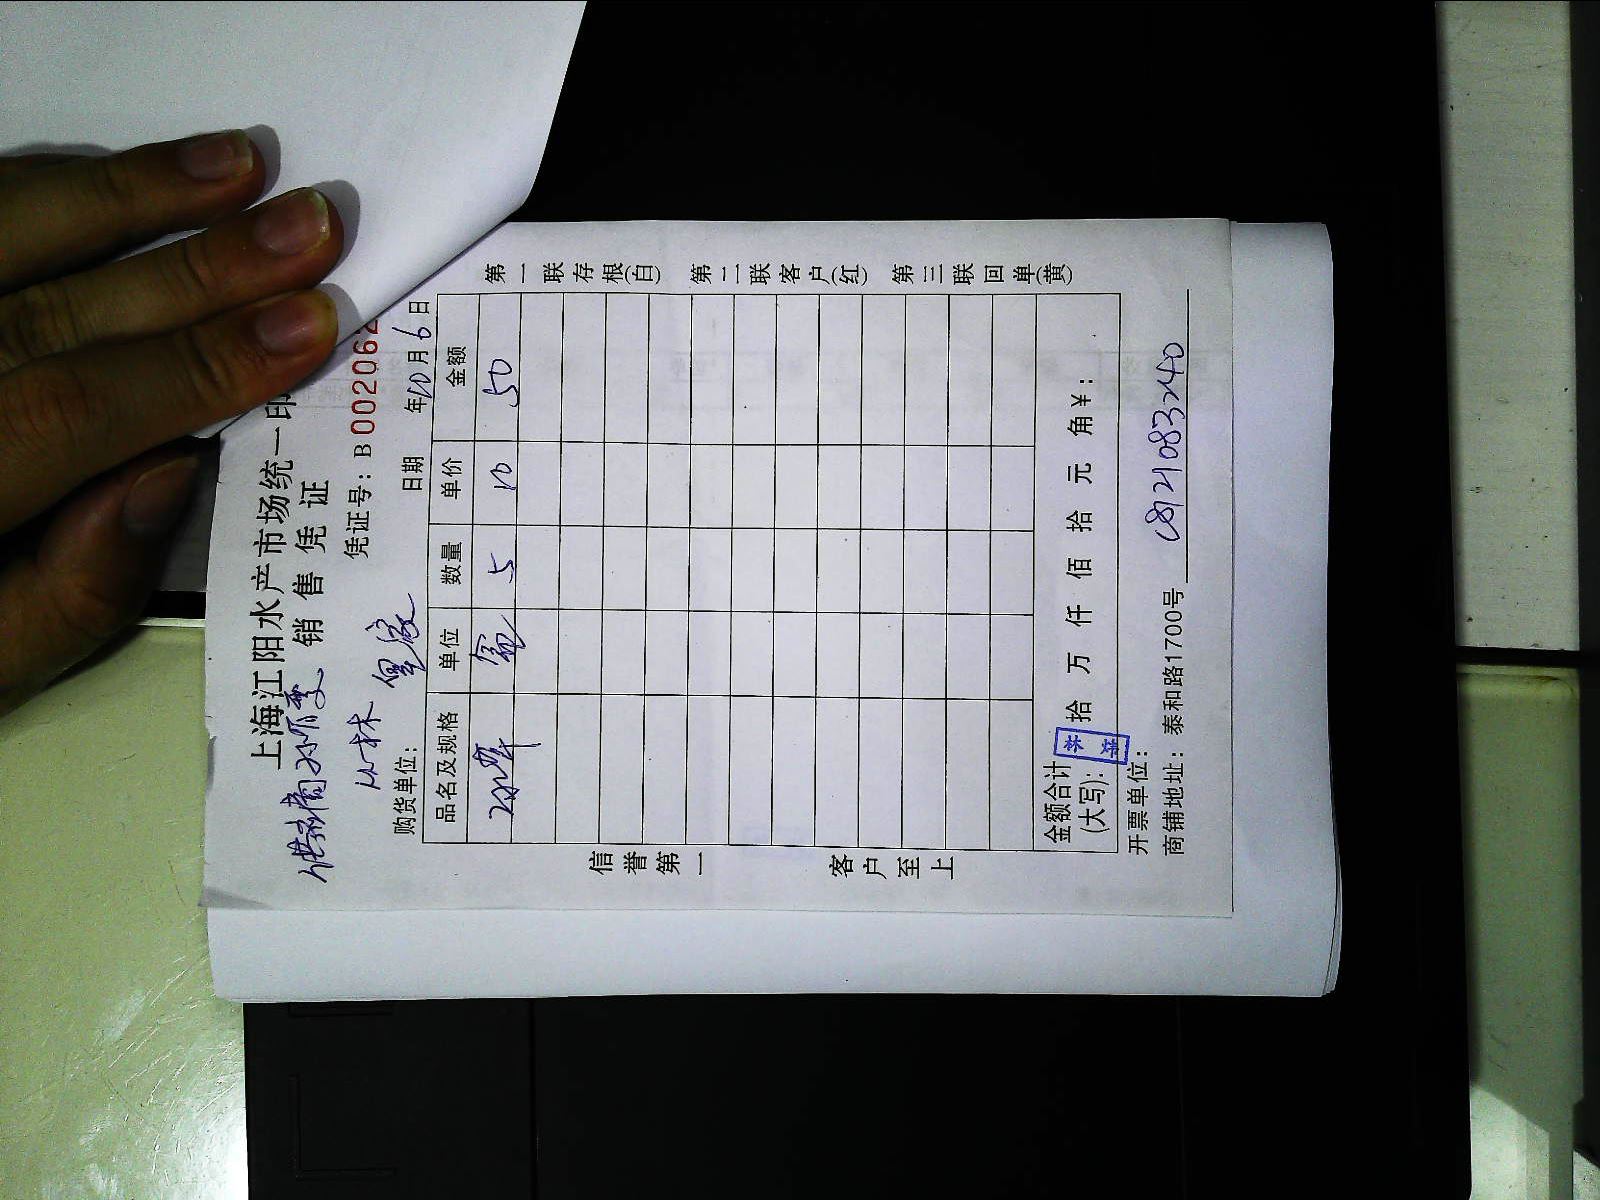 上海江阳水产市场统一印
销售凭证
凭证号：B002062
购货单位：
日期 年10月6日
品名及规格 单位 数量 单价 金额
盒 5 10 50
金额合计
(大写)： 拾 万 仟 佰 拾 元 角 ¥：
林
开票单位：
商铺地址：泰和路1700号
信誉第一 客户至上
第一联存根(白) 第二联客户(红) 第三联回单(黄)